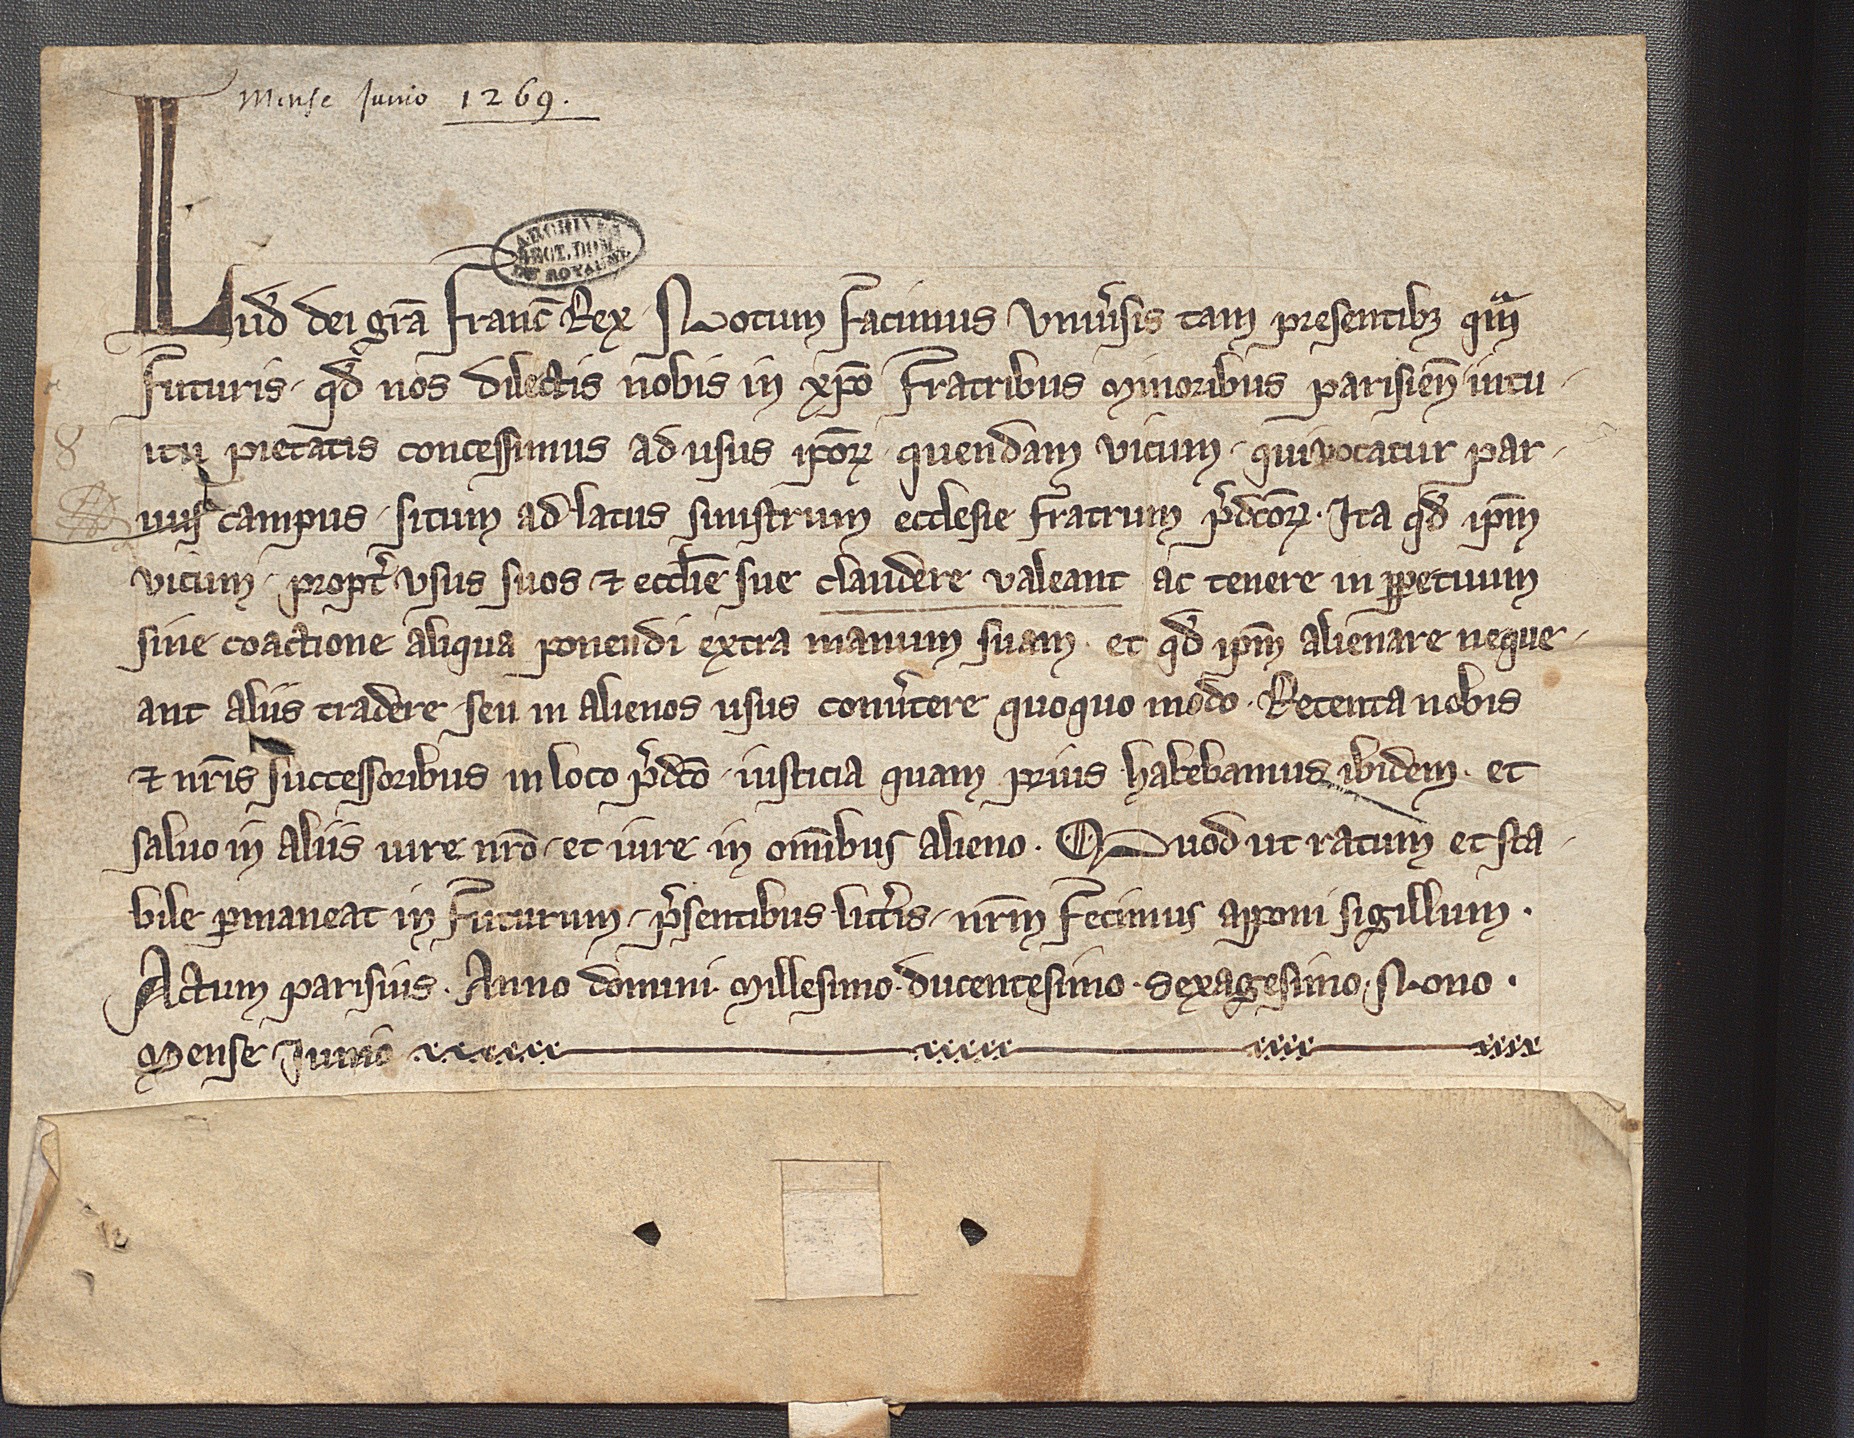 Mense Junio 1269.
ARCHIVES
SECT. DOM.
DU ROYAUME
Lud̄ dei gr̄a Franc̄ Rex Notum facimus vniu̾sis tam presentibꝫ qͣm
futuris qd̄ nos dilectis nobis in xp̄o Fratribus Minoribus parisien̄ intu-
itu pietatis concessimus ad usus ip̄oꝝ quendam vicum qui vocatur par-
uus campus situm ad latus sinistrum ecclesie fratrum p̾dc̄oꝝ. Ita qd̄ ip̄m
vicum propt̾ vsus suos ⁊ eccl̄ie sue claudere valeant ac tenere in ꝑpetuum
sine coactione aliqua ponendi extra manum suam. et qd̄ ip̄m alienare neque-
ant aliis tradere seu in alienos usus conu̾tere quoquo modo. Retenta nobis
⁊ nr̄is successoribus in loco p̾dc̄o iusticia quam prius habebamus ibidem. et
saluo in aliis iure nr̄o et iure in om̄ibus alieno. Quod ut ratum et sta-
bile ꝑmaneat in futurum p̾sentibus litt̾is nr̄m fecimus apponi sigillum.
Actum parisius. Anno domini Millesimo ducentesimo sexagesimo Nono.
Mense Junio
8